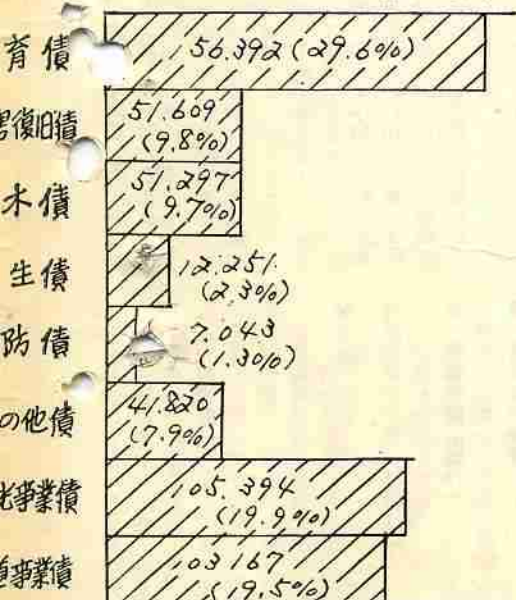 育債
156.392(29.6%)
害復旧債
51.609
(9.8%)
木債
51.297
(9.7%)
生債
12.251
(2.3%)
防債
7.043
(1.3%)
の他債
41.820
(7.9%)
光事業債
105.394
(19.9%)
道事業債
103167
(19.5%)